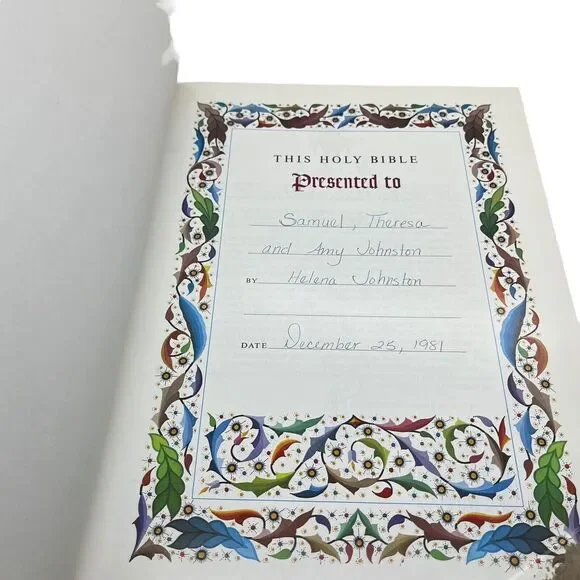 THIS HOLY BIBLE
Presented to
Samuel, Theresa
and Amy Johnston
BY Helena Johnston
DATE December 25, 1981